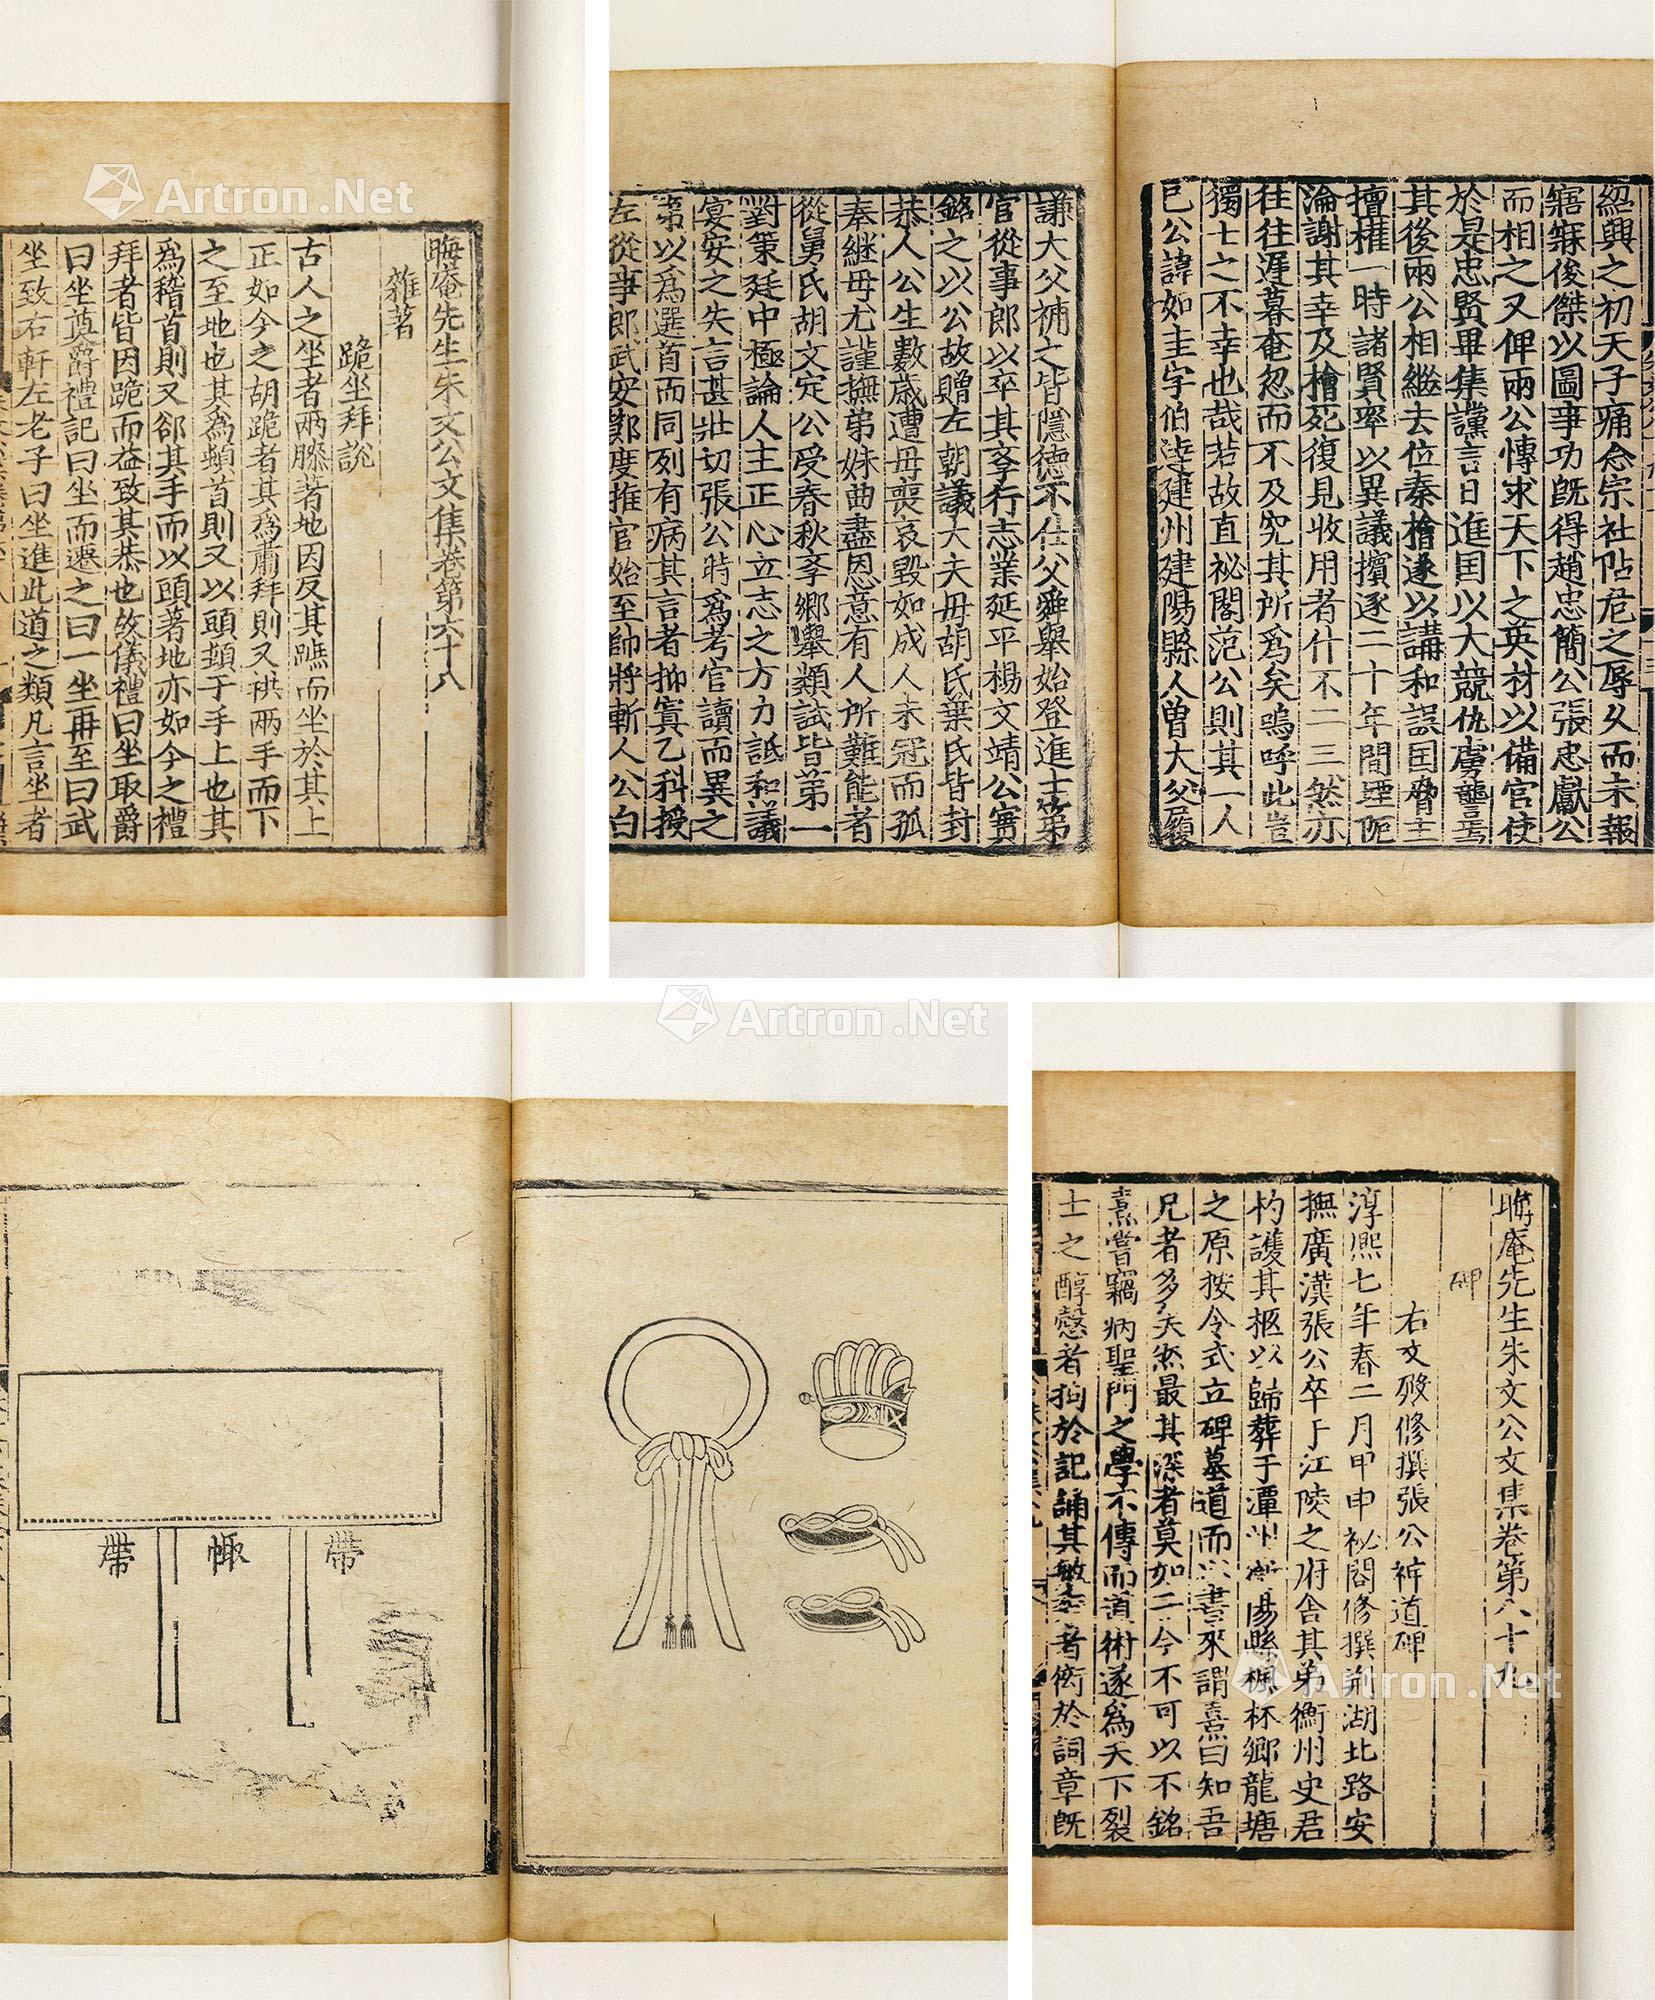 晦庵先生朱文公文集卷第六十八
雜著
跪坐拜說
古人之坐者兩膝著地因反其蹠而坐於其上
正如今之胡跪者其為肅拜則又拱兩手而下
之至地也其為頓首則又以頭頓于手上也其
為稽首則又卻其手而以頭著地亦如今之禮
拜者皆因跪而益致其恭也故儀禮曰坐取爵
曰坐奠爵禮記曰坐而遷之曰一坐再至曰武
坐致右軒左老子曰坐進此道之類凡言坐者
紹興之初天子痛念宗社阽危之辱久而未報
寤寐俊傑以圖事功既得趙忠簡公張忠獻公
而相之又俾兩公慱求天下之英材以備官使
於是忠賢畢集讜言日進国以大競仇虜讋焉
其後兩公相繼去位秦檜遂以講和誤国脅主
擅權一時諸賢率以異議擯逐二十年間堙阨
淪謝其幸及檜死復見收用者什不二三然亦
往往遲暮奄忽而不及究其所為矣嗚呼此豈
獨士之不幸也哉若故直祕閣范公則其一人
已公諱如圭字伯達建州建陽縣人曾大父履
謙大父補之皆隱德不仕父舜舉始登進士第
官從事郎以卒其孝行志業延平楊文靖公實
銘之以公故贈左朝議大夫母胡氏葉氏皆封
恭人公生數歲遭母喪哀毀如成人未冠而孤
奉繼母尤謹撫弟妹曲盡恩意有人所難能者
從舅氏胡文定公受春秋孝鄉舉類試皆第一
對策廷中極論人主正心立志之方力詆和議
宴安之失言甚壯切張公時為考官讀而異之
第以為選首而同列有病其言者抑寘乙科授
左從事郎武安鄭度推官始至帥將斬人公白
帶
幭
帶
晦庵先生朱文公文集卷第八十九
碑
右文殿修撰張公神道碑
淳熙七年春二月甲申祕閣修撰荊湖北路安
撫廣漢張公卒于江陵之府舍其弟衡州史君
杓護其柩以歸葬于潭州衡陽縣楓林鄉龍塘
之原按令式立碑墓道而以書來謂熹曰知吾
兄者多矣然最其深者莫如子今不可以不銘
熹嘗竊病聖門之學不傳而道術遂為天下裂
士之醇慤者拘於記誦其敏秀者衒於詞章既
Artron.Net
Artron.Net
Artron.Net